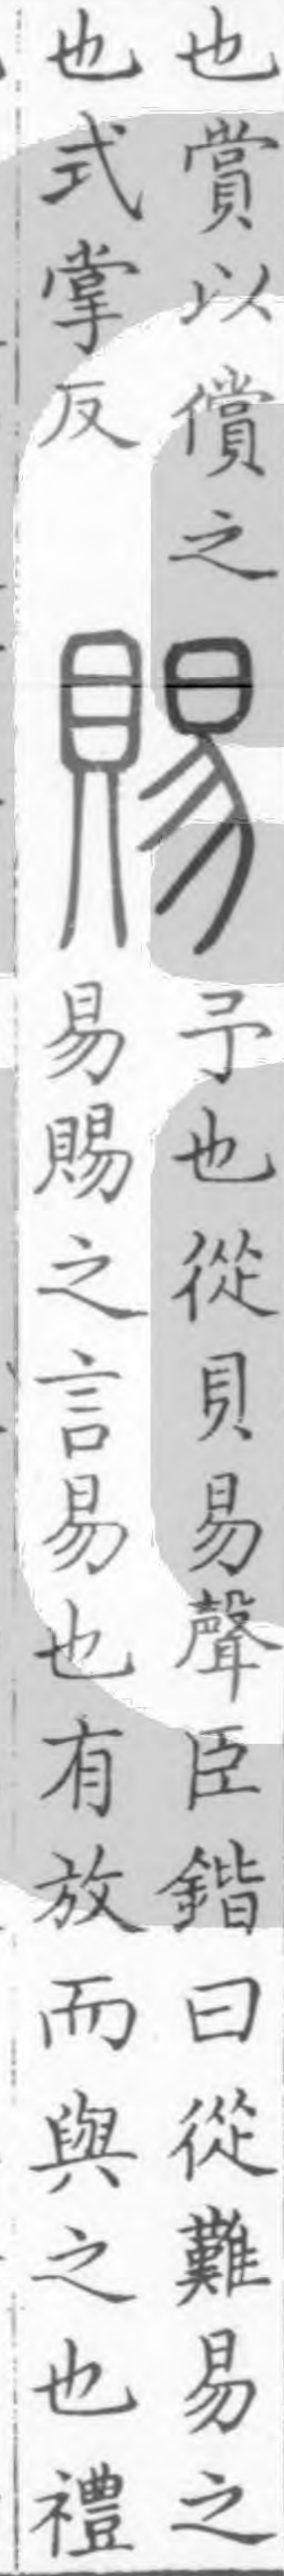 也賞以償之
也式掌反
賜
予也從貝易聲臣鍇曰從難易之
易賜之言易也有放而與之也禮